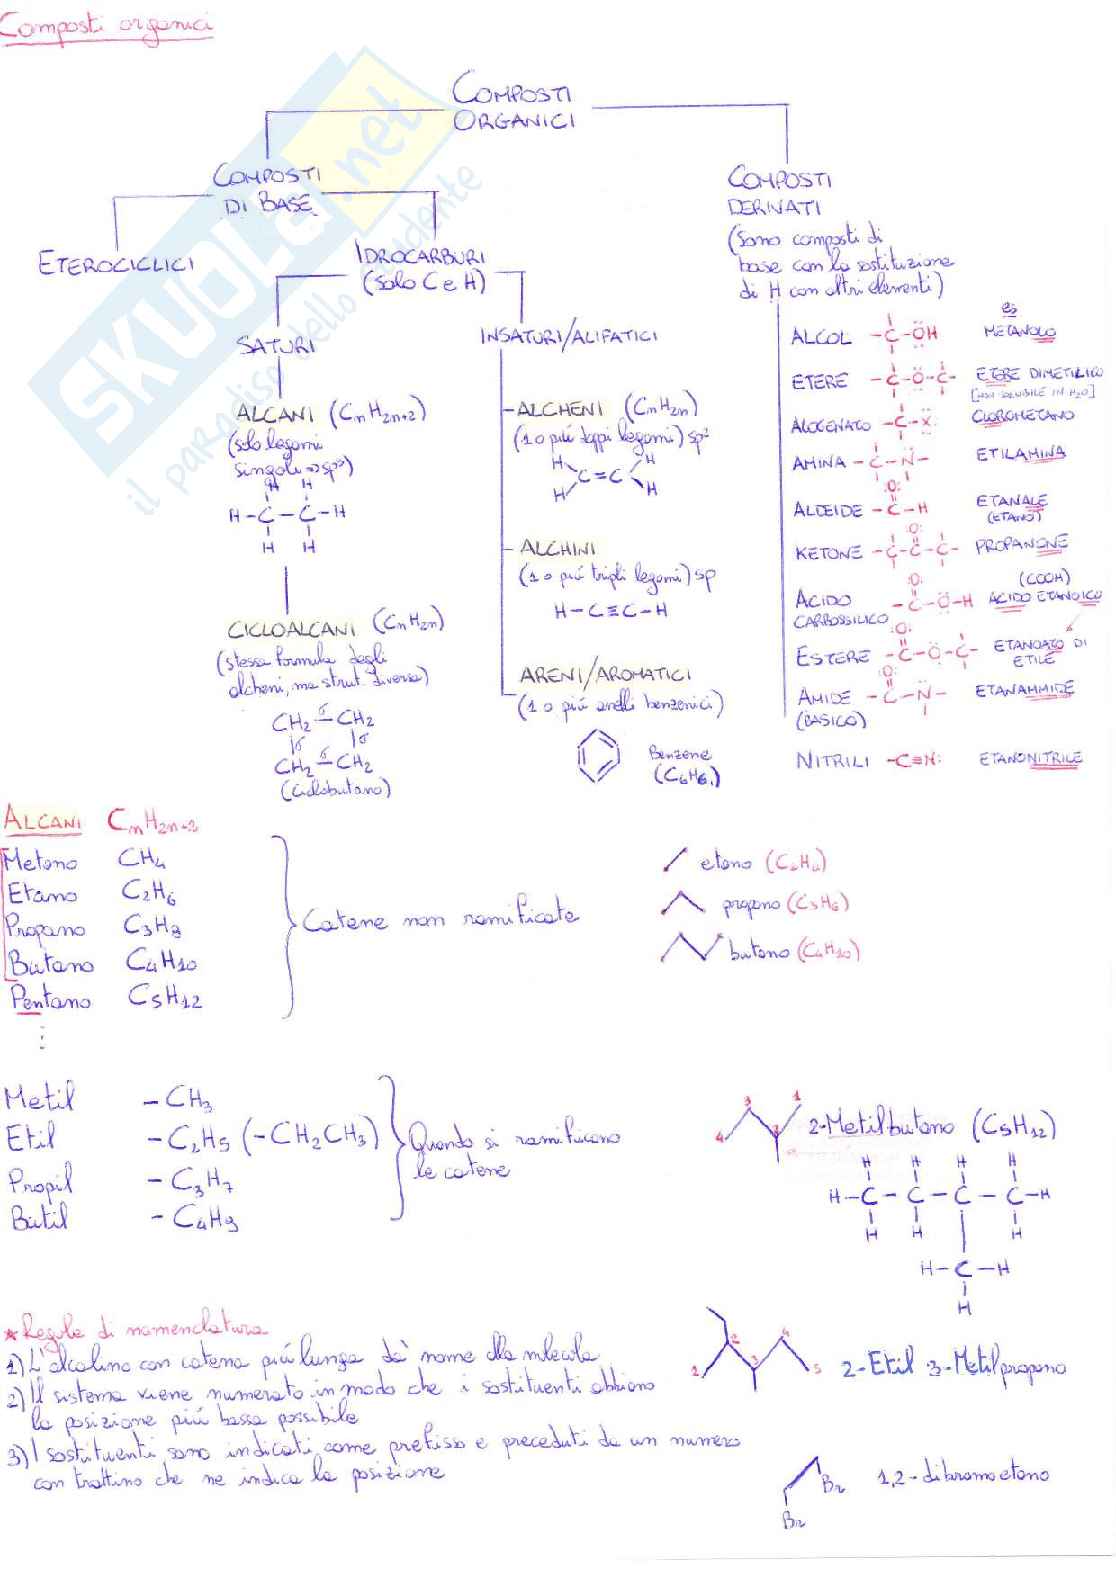 Composti organici
COMPOSTI
ORGANICI
COMPOSTI
DI BASE
ETEROCICLICI
IDROCARBURI
(solo C e H)
SATURI
ALCANI (CnH2n+2)
(solo legami
singoli => sp³)
H H
H-C-C-H
H H
CICLOALCANI (CnH2n)
(stessa formula degli
alcheni, ma strut. diversa)
CH2 σ CH2
σ σ
CH2 σ CH2
(ciclobutano)
INSATURI/ALIFATICI
ALCHENI (CnH2n)
(1 o più doppi legami) sp²
H H
C=C
H H
ALCHINI
(1 o più tripli legami) sp
H-C≡C-H
ARENI/AROMATICI
(1 o più anelli benzenici)
Benzene
(C6H6)
COMPOSTI
DERIVATI
(Sono composti di
base con la sostituzione
di H con altri elementi)
es
ALCOL -C-OH METANOLO
ETERE -C-O-C- ETERE DIMETILICO
[non solubile in H2O]
ALOGENATO -C-X: CLOROMETANO
AMINA -C-N- ETILAMINA
:O:
ALDEIDE -C-H ETANALE
:O:
KETONE -C-C-C- PROPANONE
:O: (COOH)
ACIDO -C-O-H ACIDO ETANOICO
CARBOSSILICO
:O:
ESTERE -C-O-C- ETANOATO DI
ETILE
:O:
AMIDE -C-N- ETANAMMIDE
(BASICO)
NITRILI -C≡N: ETANONITRILE
ALCANI CnH2n+2
Metano CH4
Etano C2H6
Propano C3H8
Butano C4H10
Pentano C5H12
Catene non ramificate
etano
propano (C3H6)
butano (C4H10)
Metil -CH3
Etil -C2H5 (-CH2CH3)
Propil -C3H7
Butil -C4H9
Quando si ramificano
le catene
4 3 2 1 2-Metilbutano (C5H12)
H H H H
H-C-C-C-C-H
H H H
H-C-H
H
* Regole di nomenclatura
1) L'alcalino con catena più lunga dà nome alla mlecola
2) Il sistema viene numerato in modo che i sostituenti abbiano
la posizione più bassa possibile
3) I sostituenti sono indicati come prefisso e preceduti da un numero
con trattino che ne indica la posizione
2 3 4 5 2-Etil-3-Metilpropano
Br
Br
1,2-dibromoetano
SKUOLA.net
il paradiso dello studente